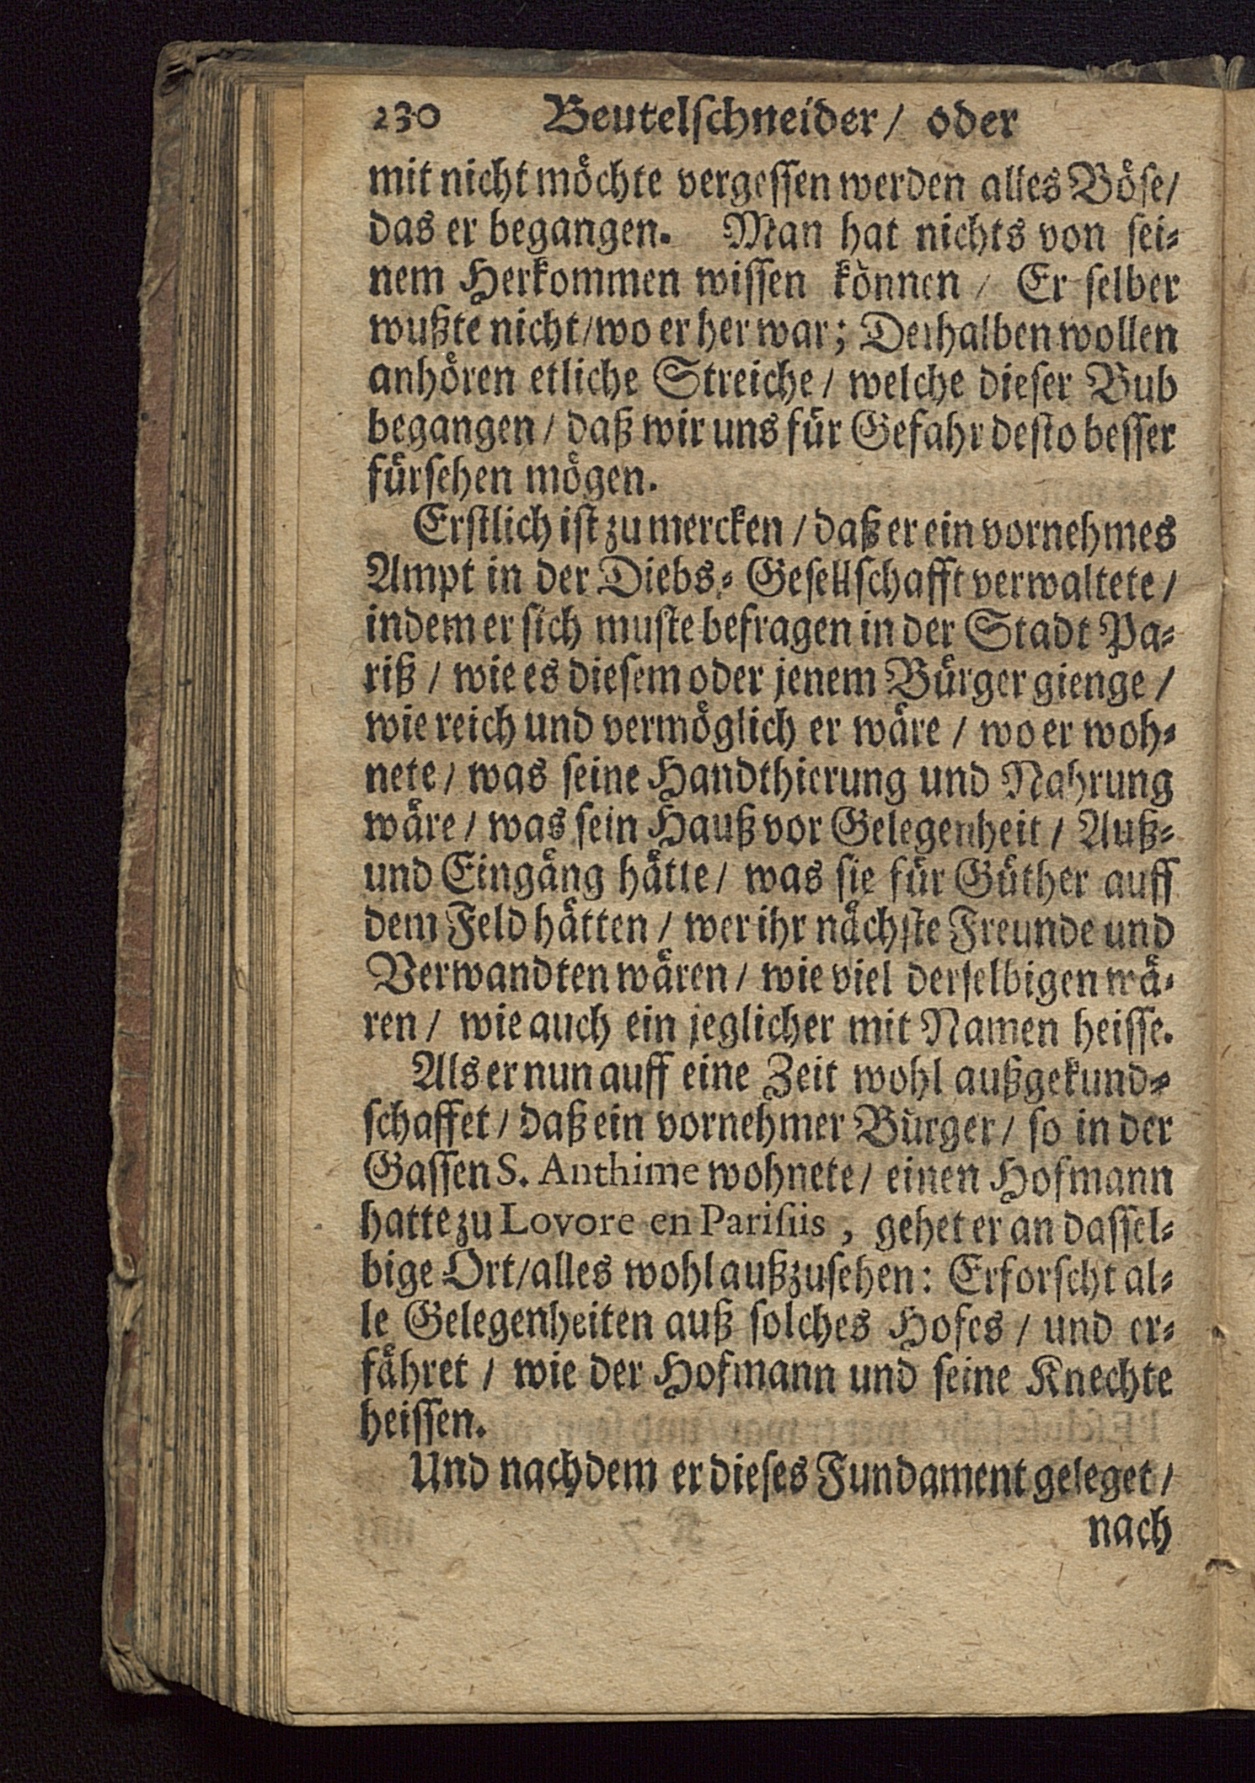 230 Beutelſchneider / oder
mit nicht möchte vergeſſen werden alles Böſe /
das er begangen. Man hat nichts von ſei-
nem Herkommen wiſſen können / Er ſelber
wußte nicht / wo er her war; Derhalben wollen
anhören etliche Streiche / welche dieſer Bub
begangen / daß wir uns für Gefahr deſto beſſer
fürſehen mögen.
Erſtlich iſt zu mercken / daß er ein vornehmes
Ampt in der Diebs-Geſellſchafft verwaltete /
indem er ſich muſte befragen in der Stadt Pa-
riß / wie es dieſem oder jenem Bürger gienge /
wie reich und vermöglich er wäre / wo er woh-
nete / was ſeine Handthierung und Nahrung
wäre / was ſein Hauß vor Gelegenheit / Auß-
und Eingäng hätte / was ſie für Güther auff
dem Feld hätten / wer ihr nächſte Freunde und
Verwandten wären / wie viel derſelbigen wä-
ren / wie auch ein jeglicher mit Namen heiſſe.
Als er nun auff eine Zeit wohl außgekund-
ſchaffet / daß ein vornehmer Bürger / ſo in der
Gaſſen S. Anthime wohnete / einen Hofmann
hatte zu Lovore en Pariſiis, gehet er an daſſel-
bige Ort / alles wohl außzuſehen: Erforſcht al-
le Gelegenheiten auß ſolches Hofes / und er-
fähret / wie der Hofmann und ſeine Knechte
heiſſen.
Und nachdem er dieſes Fundament geleget /
nach